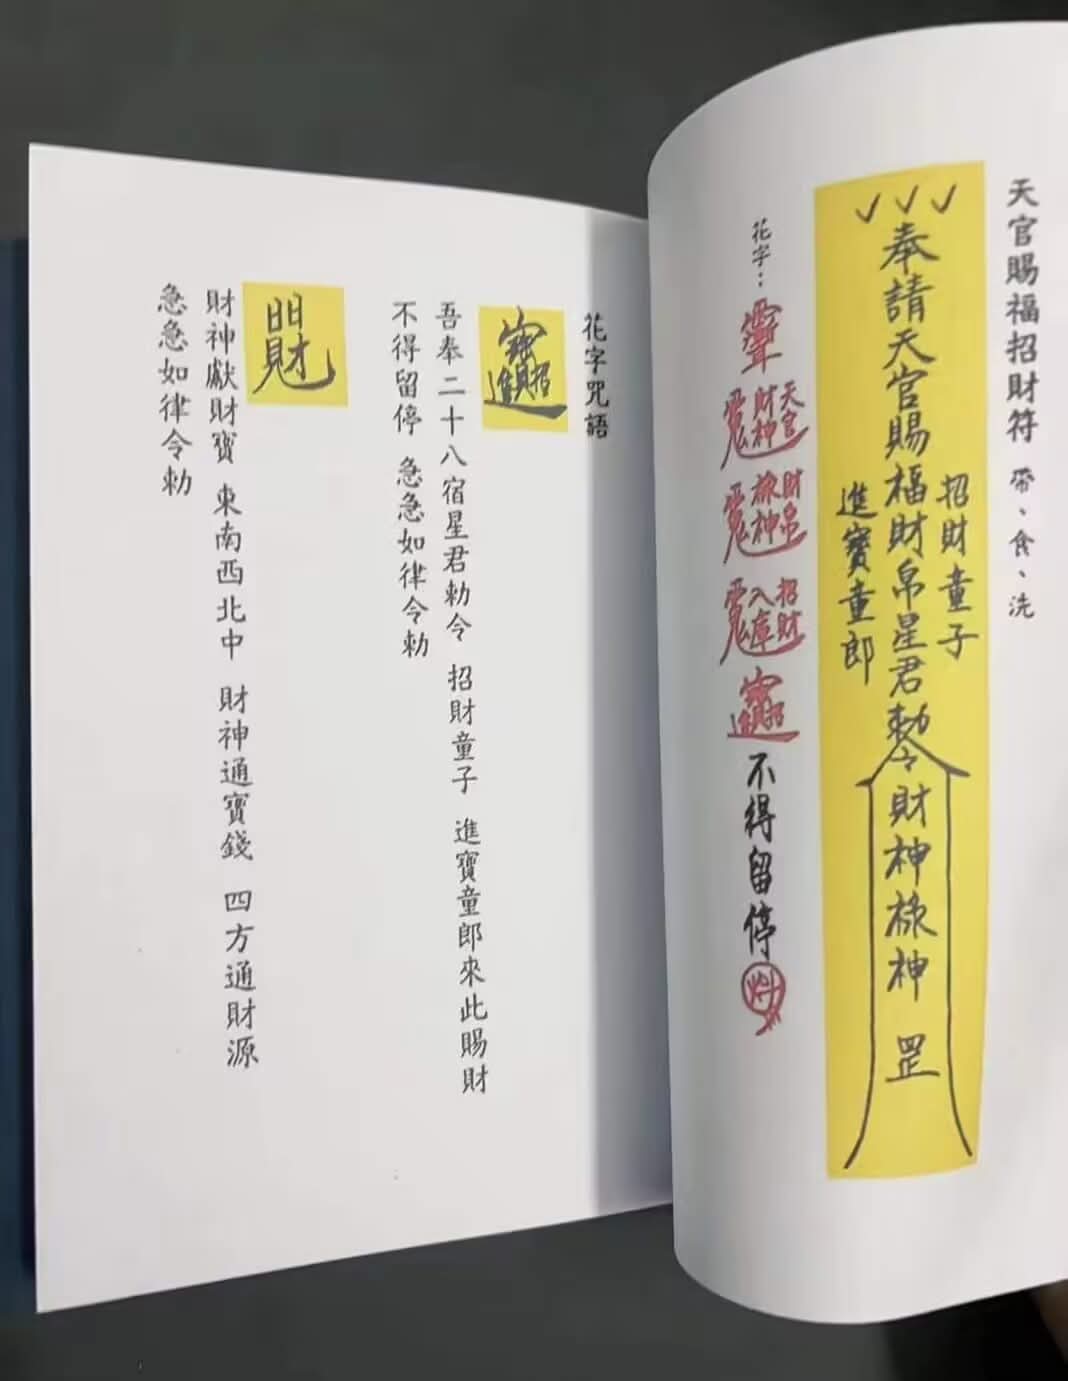 天官賜福招財符 帶、食、洗
奉請天官賜福財帛星君勅令財神祿神 罡
招財童子
進寶童郎
花字：
天官
財神
財帛
祿神
招財
入庫
不得留停
花字咒語
吾奉二十八宿星君勅令 招財童子 進寶童郎來此賜財
不得留停 急急如律令勅
財神獻財寶 東南西北中 財神通寶錢 四方通財源
急急如律令勅